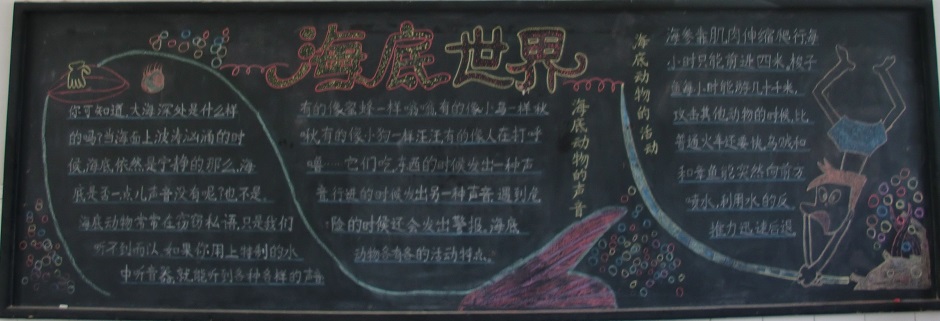 海底世界
你可知道,大海深处是什么样
的吗?当海面上波涛汹涌的时
候,海底依然是宁静的那么,海
底是否一点儿声音没有呢?也不是,
海底动物常常在窃窃私语,只是我们
听不到而认,如果你用上特制的水
中听音器,就能听到各种各样的声音
有的像蜜蜂一样嗡嗡,有的像小鸟一样啾
啾有的像小狗一样汪汪有的像人在打呼
噜……它们吃东西的时候发出一种声
音行进的时候发出另一种声音,遇到危
险的时候还会发出警报,海底
动物各有各的活动特点。
海底动物的声音
海底动物的活动
海参靠肌肉伸缩爬行每
小时只能前进四米,梭子
鱼每小时能游几十千米,
攻击其他动物的时候,比
普通火车还要快,乌贼和
和章鱼能突然向前方
喷水,利用水的反
推力迅速后退